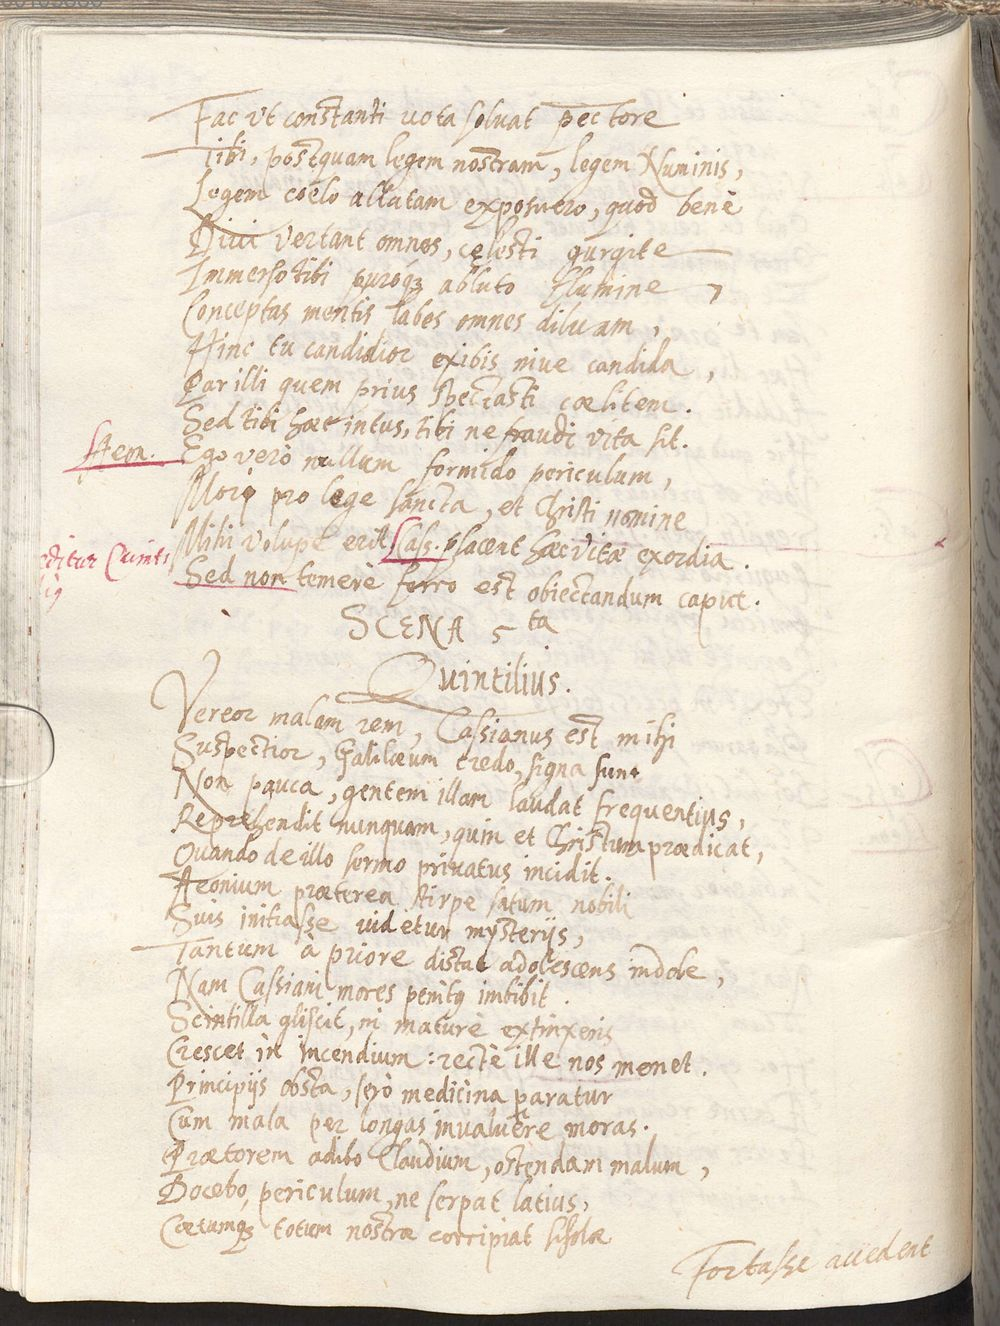 Fac vt constanti uota soluat pectore
Tibi, postquam legem nostram, legem Numinis,
Legem coelo allatam exposuero, quod benè
Diui vertant omnes, cęlesti gurgite
Immerso tibi puroq; abluto flumine
Conceptas mentis labes omnes diluam,
Hinc tu candidior exibis niue candida,
Par illi quem prius spectasti coelitem.
Sed tibi haec intus, tibi ne fraudi vita sit.
Aeon. Ego verò nullum formido periculum,
Mori pro lege sancta, et Christi nomine
Mihi volupè erit Cass. placent haec vitae exordia.
Sed non temerè ferro est obiectandum caput.
SCENA 5ta
Quintilius.
Vereor malam rem, Cassianus est mihi
Suspectior, Galilaeum credo, signa sunt
Non pauca, gentem illam laudat frequentius,
Reprehendit nunquam, quin et Christum praedicat,
Quando de illo sermo priuatus incidit.
Aeonium praeterea stirpe satum nobili
Suis initiasse uidetur mysterijs,
Tantum à priore distat adolescens indole,
Nam Cassiani mores penitq imbibit.
Scintilla gliscit, ni maturè extinxeris
Crescet in incendium: rectè ille nos monet.
Principijs obsta, serò medicina paratur
Cum mala per longas inualuêre moras.
Praetorem adibo Claudium, ostendam malum,
Docebo, periculum, ne serpat latius,
Coetumq; totum nostrae corripiat scholae
Fortasse accedent